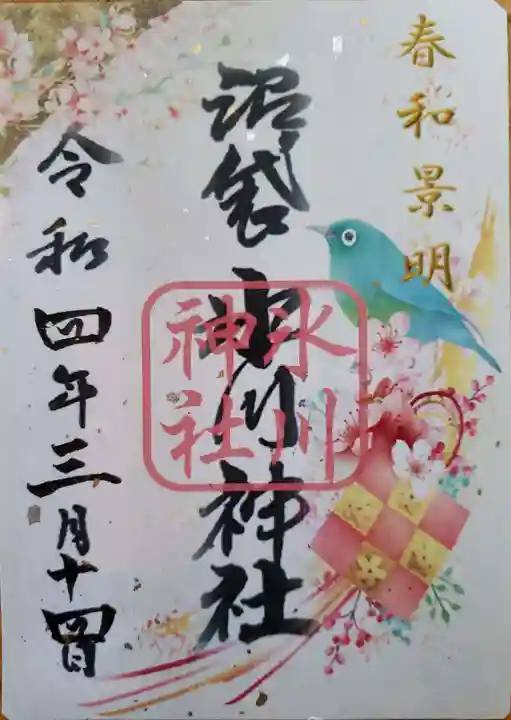 春和景明
沼袋氷川神社
氷川
神社
令和四年三月十四日